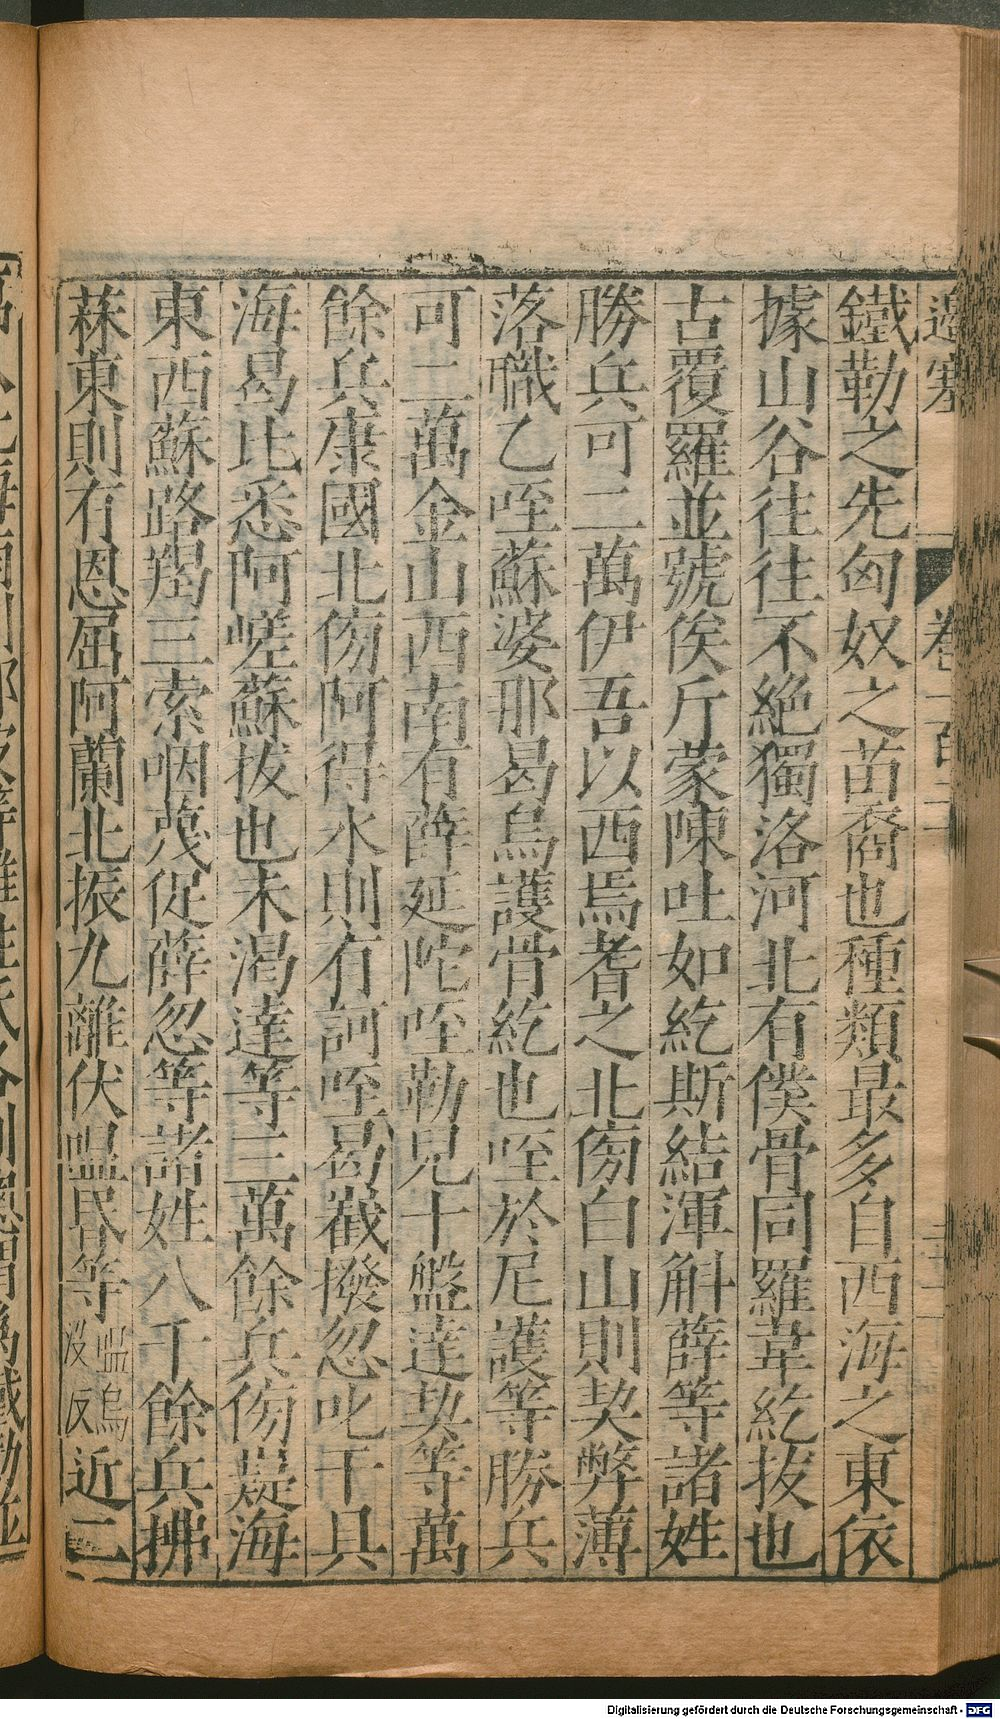 邊塞 卷一百
鐵勒之先匈奴之苗裔也種類最多自西海之東依
據山谷往往不絕獨洛河北有僕骨同羅韋紇拔也
古覆羅並號俟斤蒙陳吐如紇斯結渾斛薛等諸姓
勝兵可二萬伊吾以西焉耆之北傍白山則契弊薄
落職乙咥蘇婆那曷烏護骨紇也咥於尼護等勝兵
可二萬金山西南有薛延陀咥勒兒十盤達契等萬
餘兵康國北傍阿得水則有訶咥曷截撥忽叱干具
海曷比悉阿嵯蘇拔也未渴達等三萬餘兵傍嶷海
東西蘇路羯三索咽蔑促薛忽等諸姓八千餘兵拂
菻東則有恩屈阿蘭北振九離伏嗢昬等嗢烏没反近二
Digitalisierung gefördert durch die Deutsche Forschungsgemeinschaft - DFG